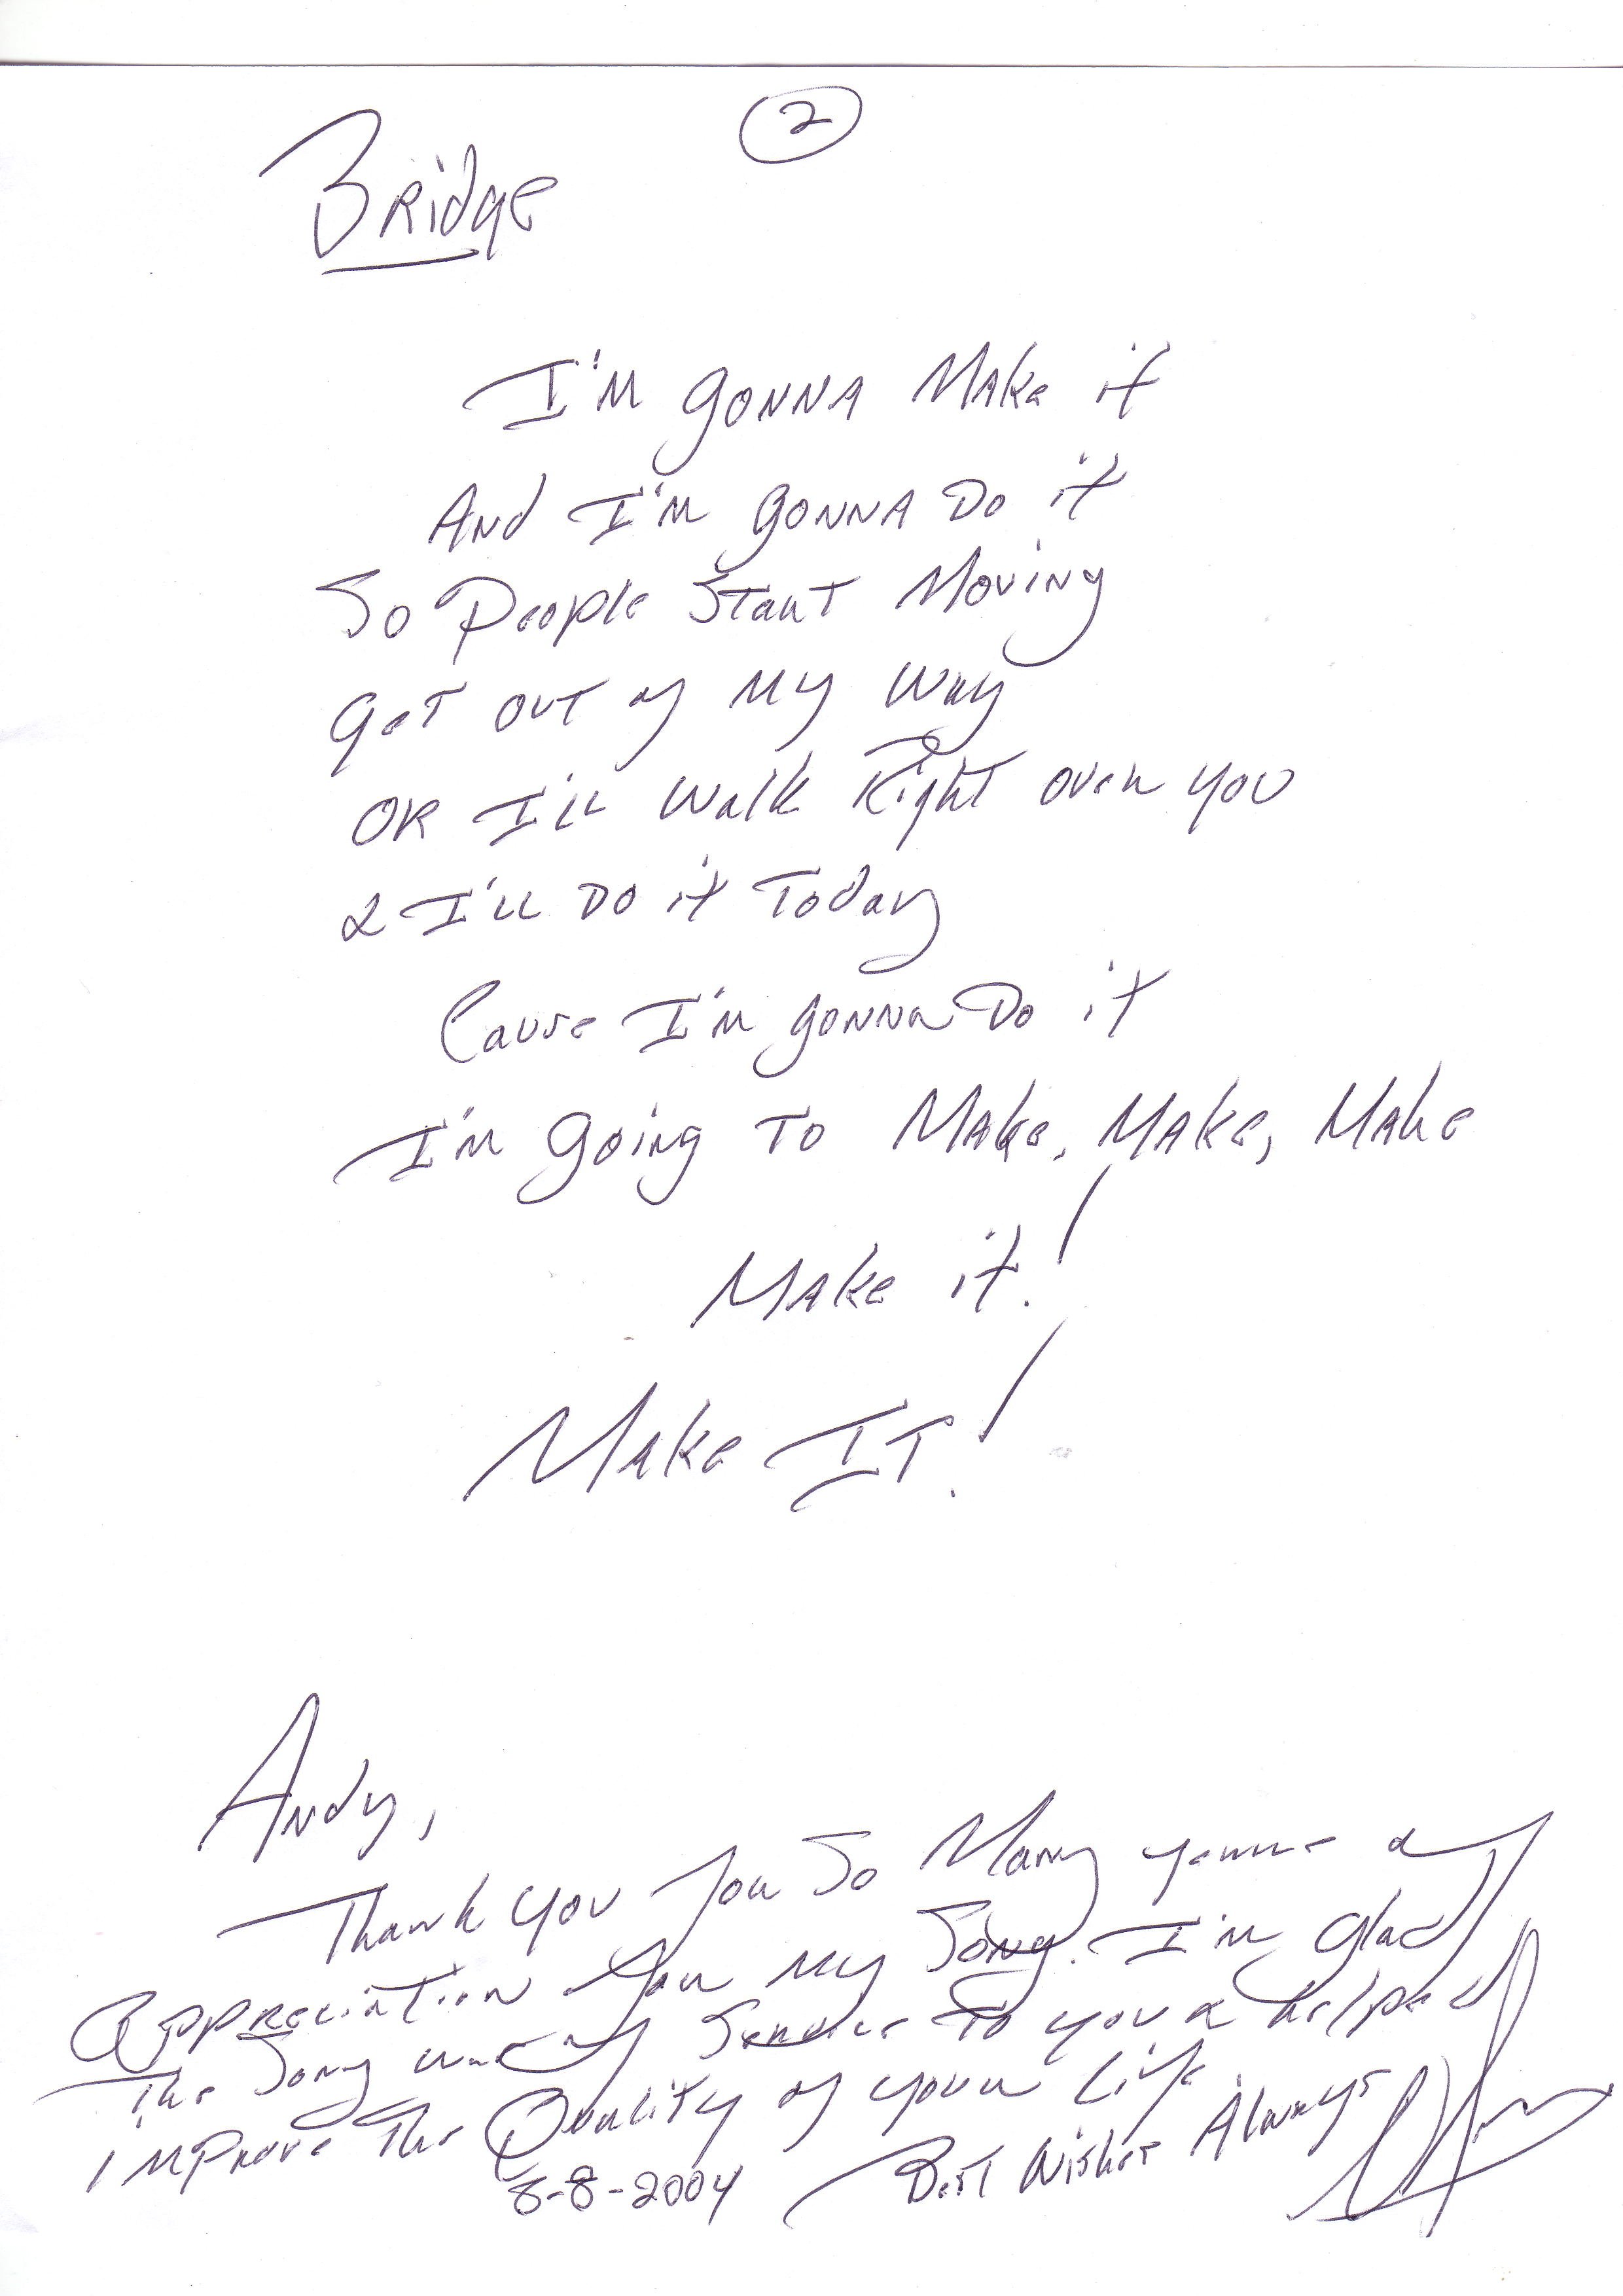 2
Bridge
I'm gonna Make it
And I'm gonna Do it
So People Start Moving
Get out of My Way
OR I'll Walk Right over you
& I'll Do it Today
Cause I'm gonna Do it
I'm going To Make, Make, Make
Make it!
Make IT!
Andy,
Thank you for So Many years of
Appreciation for my Song. I'm glad
The Song was of Service to you & helped
improve The Quality of your Life
8-8-2004 Best Wishes Always